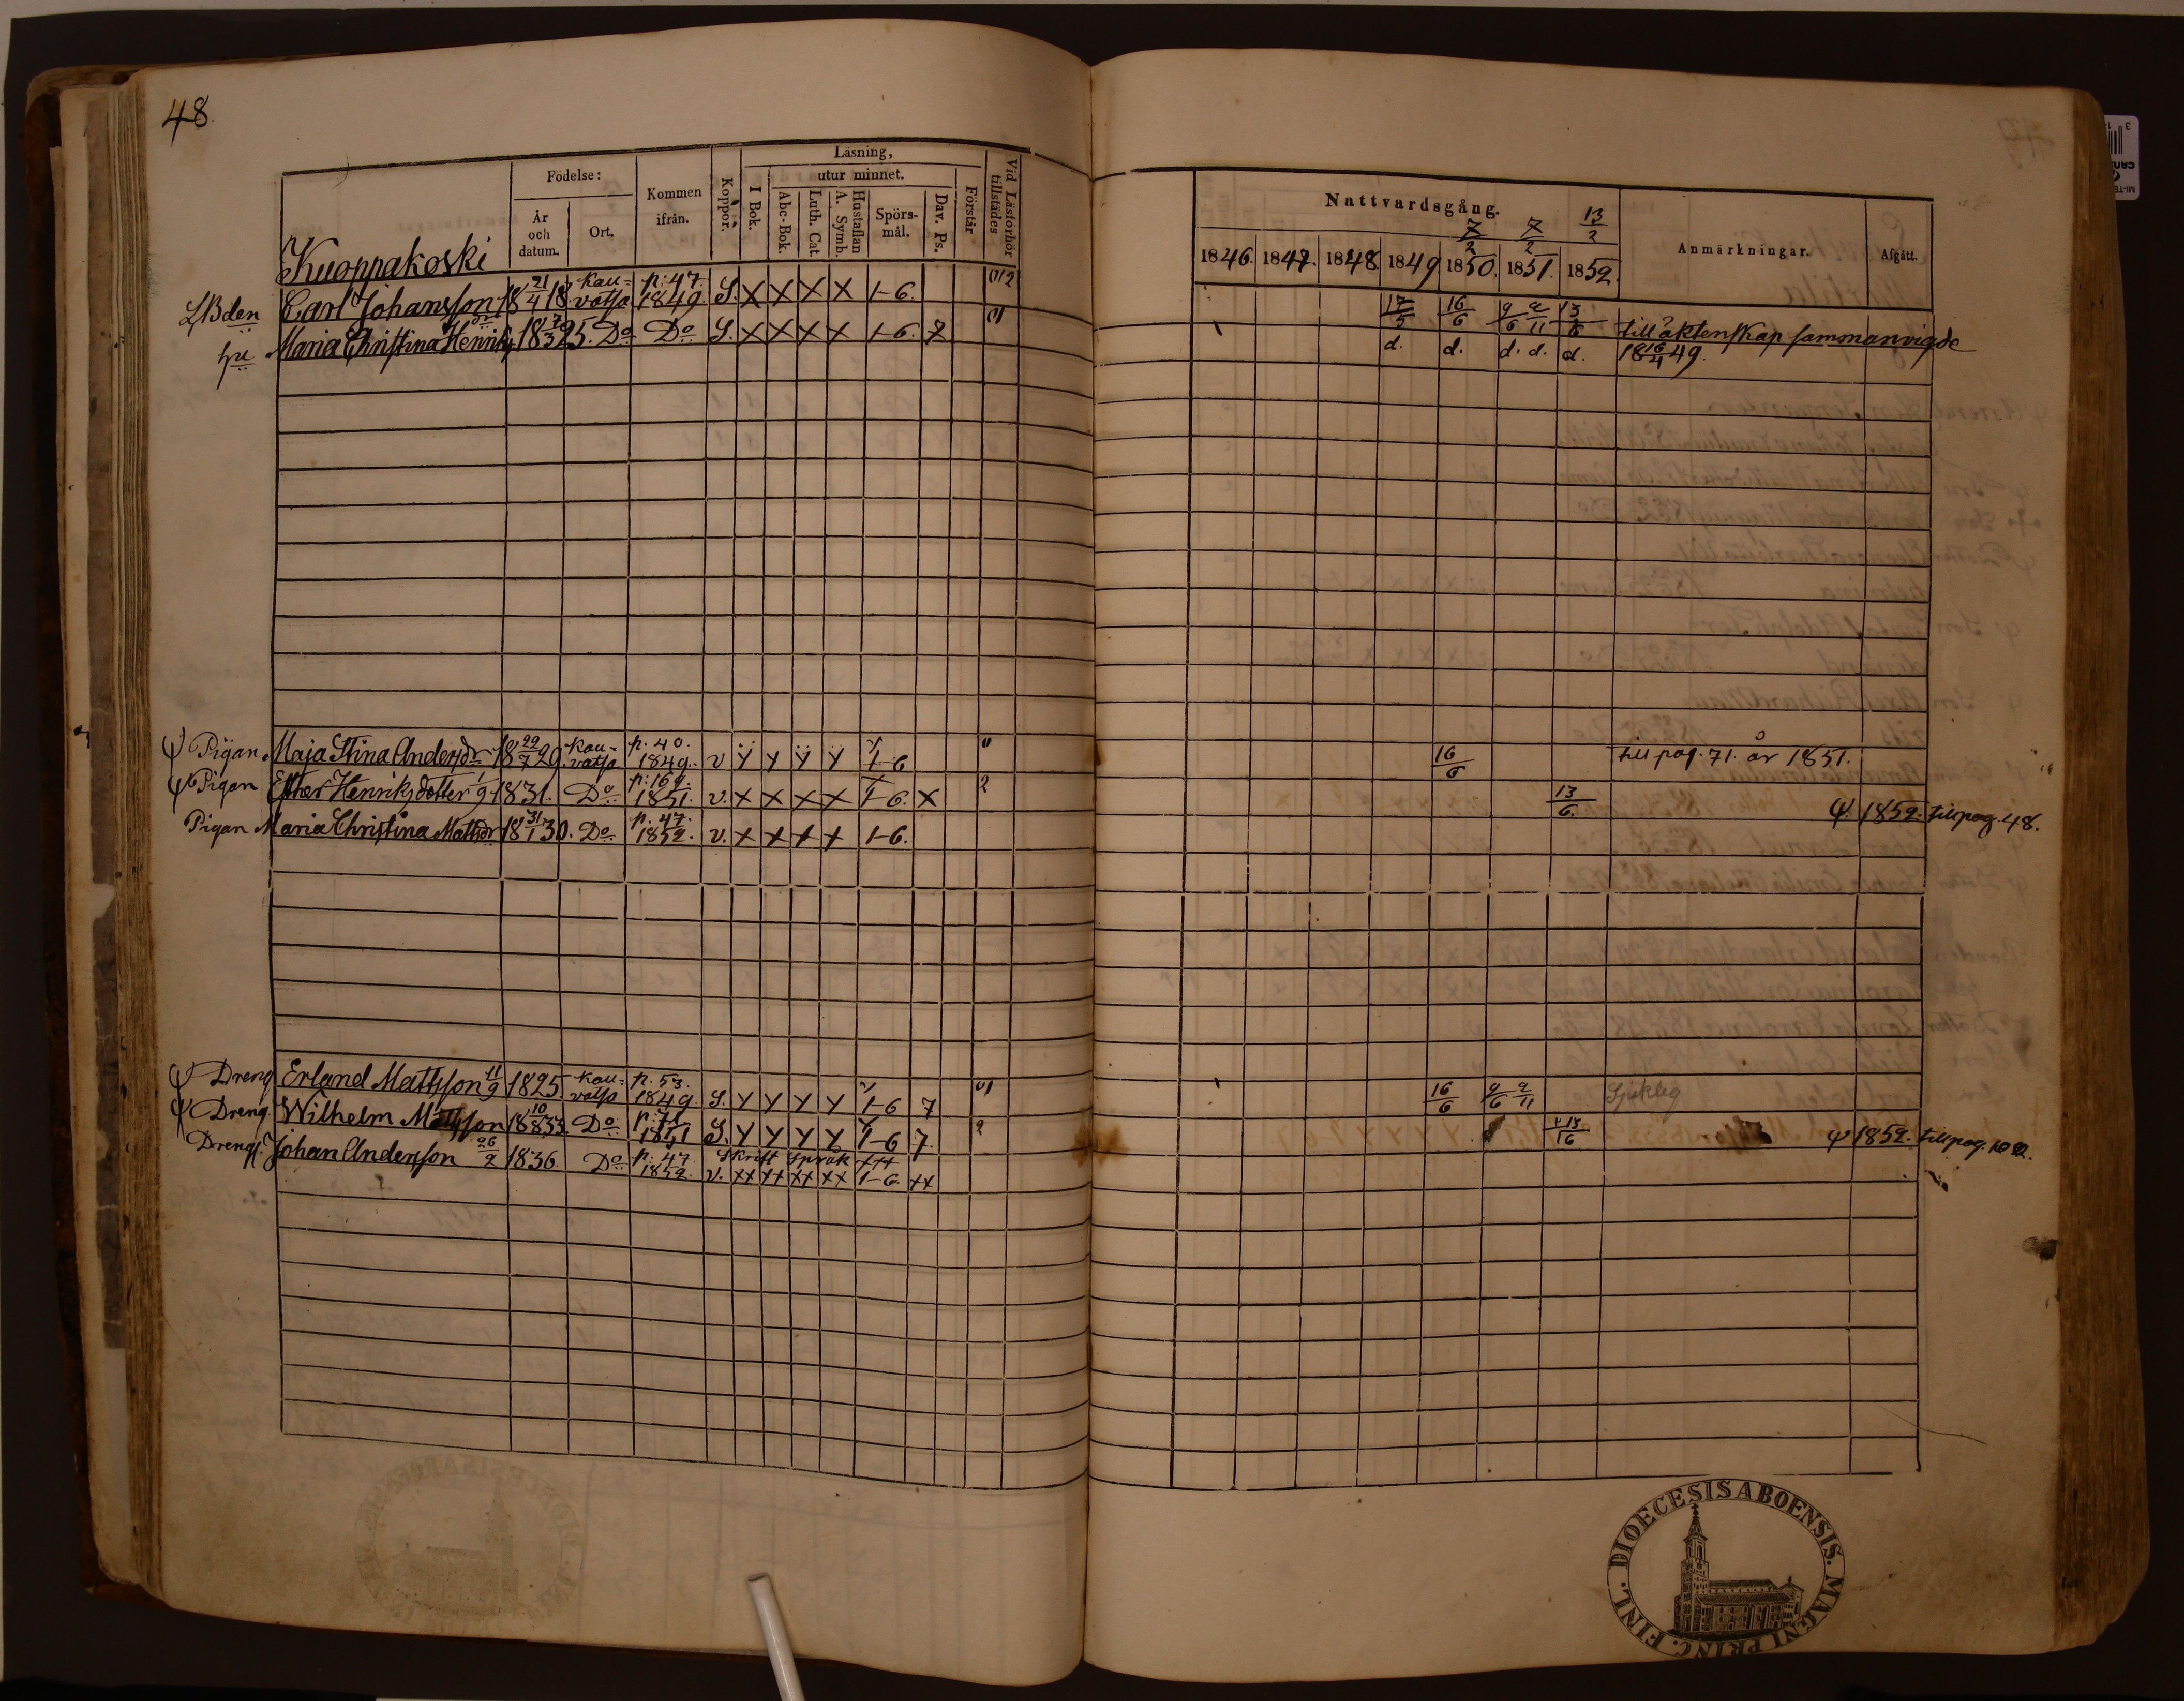 48.
Födelse:
År och datum.
Ort.
Kommen ifrån.
Koppor.
Läsning,
I Bok.
utur minnet.
Abc-Bok.
Luth. Cat.
Hustaflan A. Symb.
Spörsmål.
Dav. Ps.
Förstår
Vid Läsförhör tillstädes
Nattvardsgång.
7/2 7/2 13/2
1846. 1847. 1848. 1849 1850. 1851. 1852.
Anmärkningar.
Afgått.
Kuoppakoski
LBden Carl Johansson 18 21/4 18. Kauvatsa p: 47. 1849 S. X X X X 1-6. 012 17/5 16/6 9/6 2/11 13/6
hu Maria Christina Henriksdr 18 7/3 25. Do Do S. X X X X 1-6. 7 01 d. d. d. d. d. till äktenskap sammanvigde 18 16/4 49.
ψ Pigan Maja Stina Andersdr 18 22/7 29. Kauvatsa p. 40. 1849. v y y y y 1-6 0 16/6 till pag. 71. år 1851.
ψ Pigan Esther Henriksdotter 1/9 1831. Do p: 169. 1851. v. x x x x 1-6. x 2 13/6. ψ. 1852. till pag. 48.
Pigan Maria Christina Mattsdr 18 31/1 30. Do p. 47. 1852. v. x x x x 1-6.
ψ Dreng Erland Mattsson 11/9 1825. Kauvatsa p. 53. 1849 S. y y y y 1-6 7 01 16/6 9/6 2/11
ψ Dreng. Wilhelm Mattsson 18 10/8 33. Do p: 71 1851 S. y y y y 1-6 7. 2 13/16 ψ 1852. till pag. 102.
Drengs. Johan Andersson 26/2 1836 Do p. 47 1852. Skrift Språk xxx v. xx xx xx xx 1-6 xx
FINL. DIOECESIS ABOENSIS. MAGNI PRINC.